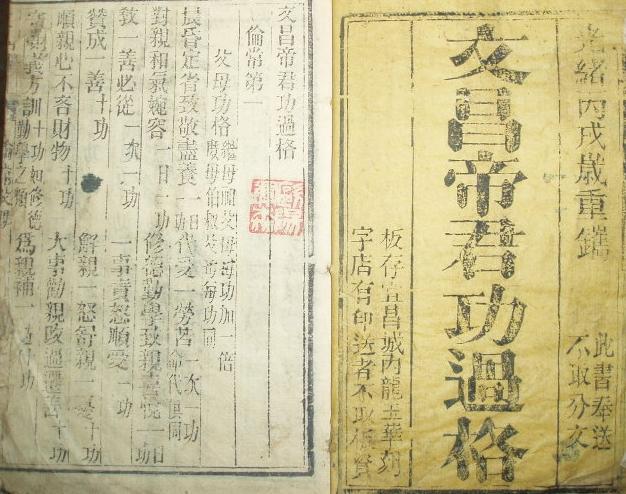 光緒丙戌歲重鐫
文昌帝君功過格
此書奉送
不取分文
板存宜昌城內龍王華刻
字店有印送者不取板資
文昌帝君功過格
倫常第一
父母功格
晨昏定省致敬盡養一日一功
代受一勞苦一次一功
對親和氣婉容一日一功
修德勤學致親喜悅一日
教一善必從一次一功
一事責怒順受一功
贊成一善十功
解親一怒舒親一憂十功
順親心不吝財物十功
大事勸親改過遷善十功
義方訓十功如修德勤學之類
為親補一過十功